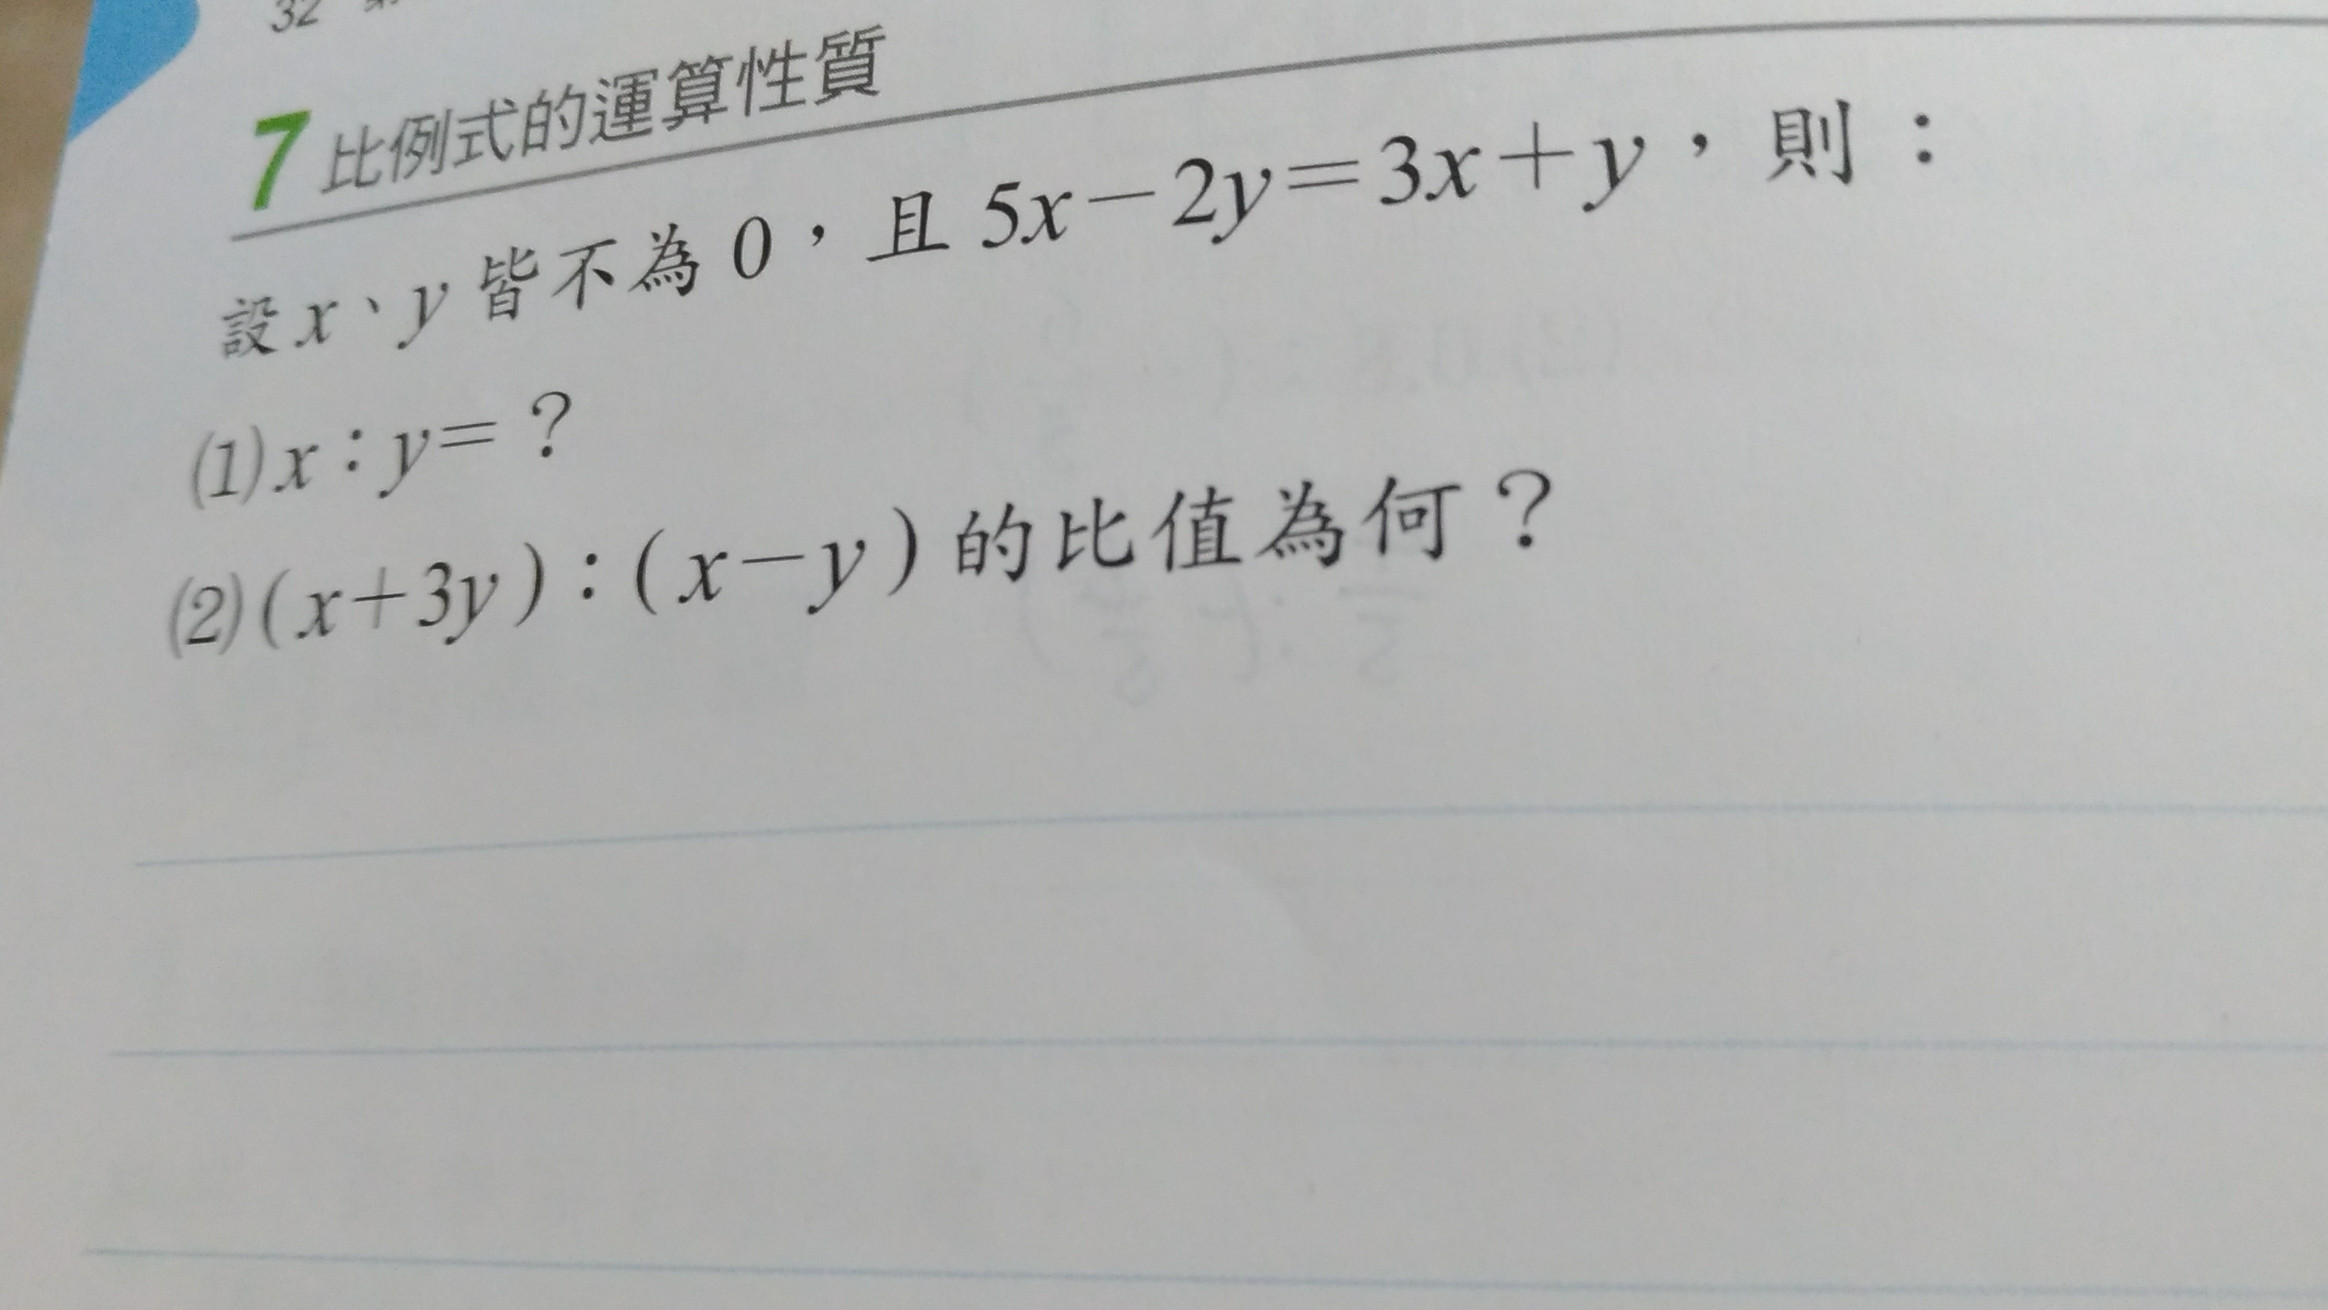 32
7 比例式的運算性質
設x、y皆不為0，且5x－2y＝3x＋y，則：
⑴x：y＝？
⑵(x＋3y)：(x－y)的比值為何？